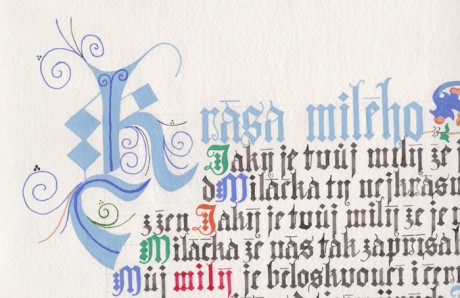 Krása milého
Jaký je tvůj milý že j
d Miláčka ty nejkrásn
z žen Jaký je tvůj milý že je
Miláčka že nás tak zapřísah
Můj milý je běloskvoucí i čer